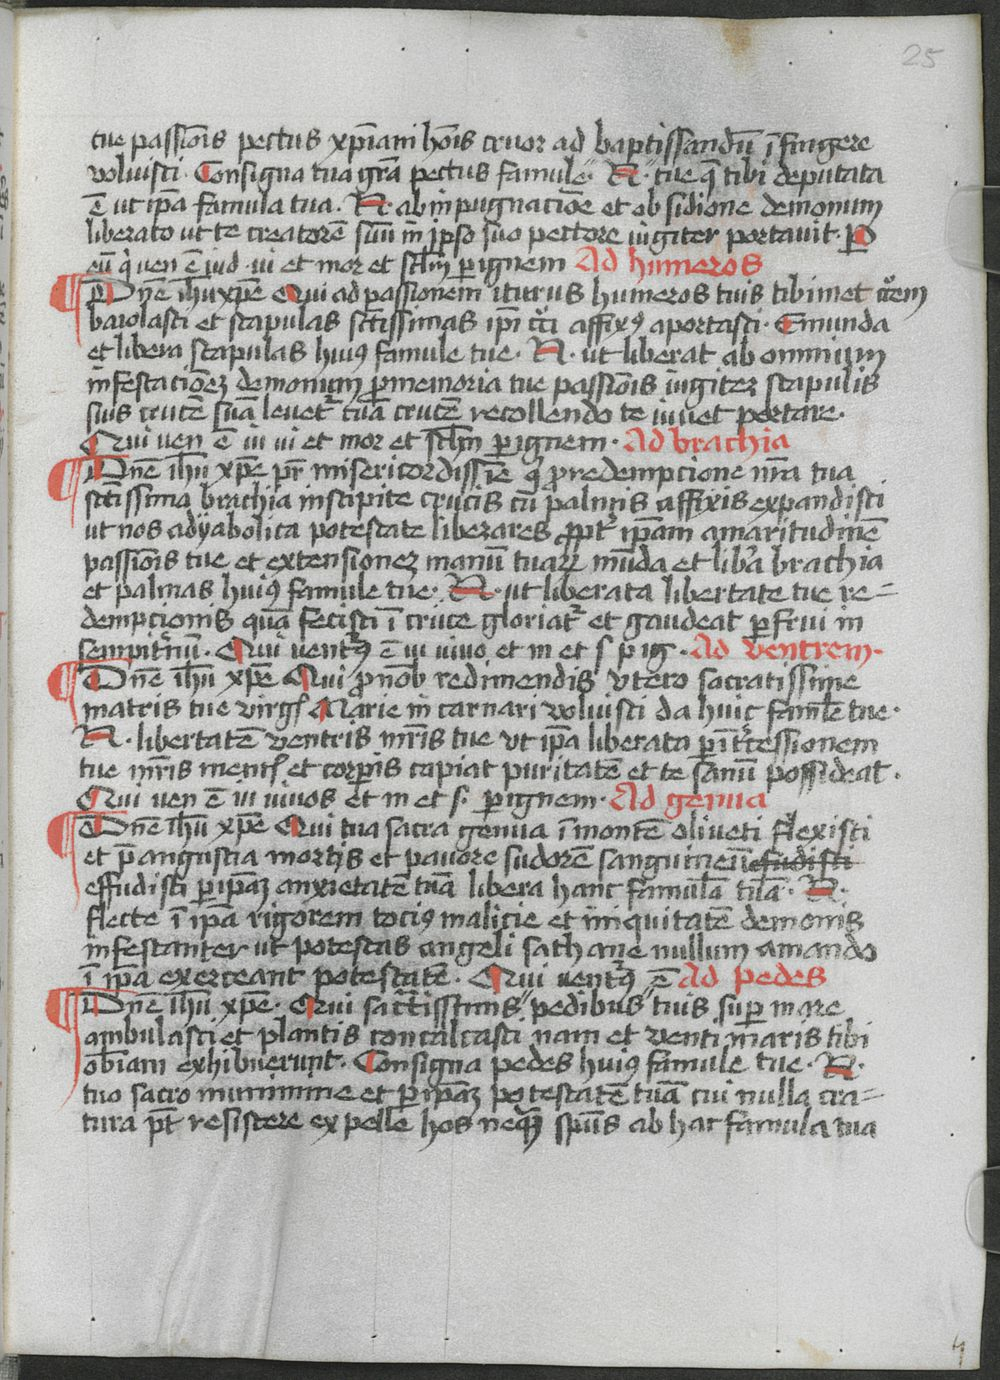 25
tue passiōis pectus xp̄iani hōīs cruor ad baptissandū īfingere
voluisti. Consigna tua grā pectus famule. N. tue q̄ tibi deputata
ē ut ip̄a famula tua. N. ab inpugnaciōe et obsidione demonum
liberato ut te creatorē suū in ipso suo pectore iugiter portauit. P
eū q̇ ven ē iud. ui et mor et sclm̄ ꝑ ignem Ad humeros
Dn̄e ih̄u xp̄e Qui ad passionem iturus humeros tuis tibimet
baiolasti et scapulas sctīssimas affixꝰ aportasti. Emunda
et libera scapulas huiꝰ famule tue. N. ut liberat ab omnium
infestacioēꝫ demonum ꝓ memoria tue passiōis iugiter scapulis
suis crucē suā leuet tuā crucē recollendo te iuvet portare.
Qui ven ē iu ui et mor et sclm̄ ꝑ ignem. Ad brachia
Dn̄e ih̄u xp̄e pr̄ misericordissīe q̇ ꝓ redempcione nr̄a tua
sctīssima brachia in stipite crucis cū palmis affixis expandisti
ut nos a dyabolica potestate liberares ꝓpt̄ ip̄am amaritudinē
passiōis tue et extensioneꝫ manuū tuaꝝ mūda et liba brachia
et palmas huiꝰ famule tue. N. ut liberata libertate tue re=
dempcionis quā fecisti ī cruce gloriat᷑ et gaudeat ꝑfrui in
sempit̄nū. Qui ventꝰ ē iu vivo et m et s p ig. Ad ventrem.
Dn̄e ih̄u xp̄e Qui ꝓ nob redimendis utero sacratissime
matris tue virgꝭ Marie in carnari voluisti da huic famle tue.
N. libertatē ventris mr̄is tue ut ip̄a liberata ꝑ īt̄cessionem
tue mr̄is mentꝭ et corꝑis capiat puritatē et te sanū possideat.
Qui ven ē iu vivos et m et s. ꝑ ignem. Ad genua
Dn̄e ih̄u xp̄e Qui tua sacra genua ī montē oliueti flexisti
et p̄ angustia mortis et pavore sudorē sanguineū efudisti
effudisti ꝑ ip̄aꝫ anxietatē tuā libera hanc famulā tuā. N.
flecte ī ip̄a rigorem tociꝰ malicie et iniquitatē demonis
infestanter ut potestas angeli sathane nullum amando
ī ip̄a exerceant potestatē. Qui ventꝰ ē Ad pedes
Dn̄e ih̄u xp̄e. Qui sactīssimis pedibus tuis suꝑ mare
ambulasti et plantis concalcasti nam et venti maris tibi
obīam exhibuerunt. Consigna pedes huiꝰ famule tue. N.
tuo sacro munimine et ꝑ ip̄aꝫ potestatē tuā cui nulla cra=
tura pt̄ resistere expelle hos neqꝫ sp̄us ab hac famula tua